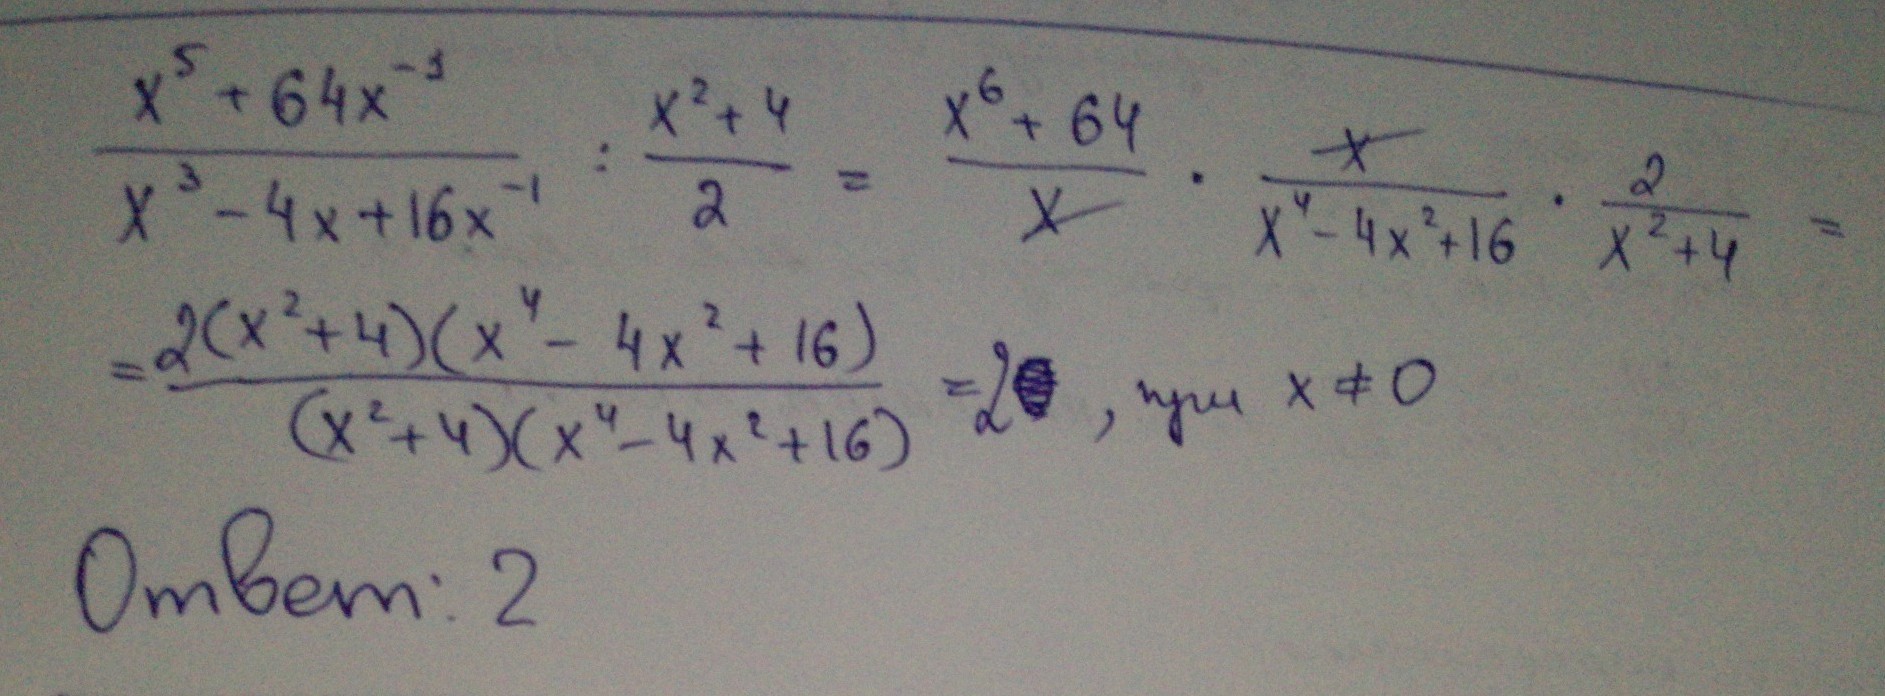 (x⁵ + 64x⁻¹)/(x³ - 4x + 16x⁻¹) : (x² + 4)/2 = (x⁶ + 64)/x · x/(x⁴ - 4x² + 16) · 2/(x² + 4) =
= 2(x² + 4)(x⁴ - 4x² + 16)/((x² + 4)(x⁴ - 4x² + 16)) = 2, при x ≠ 0
Ответ: 2